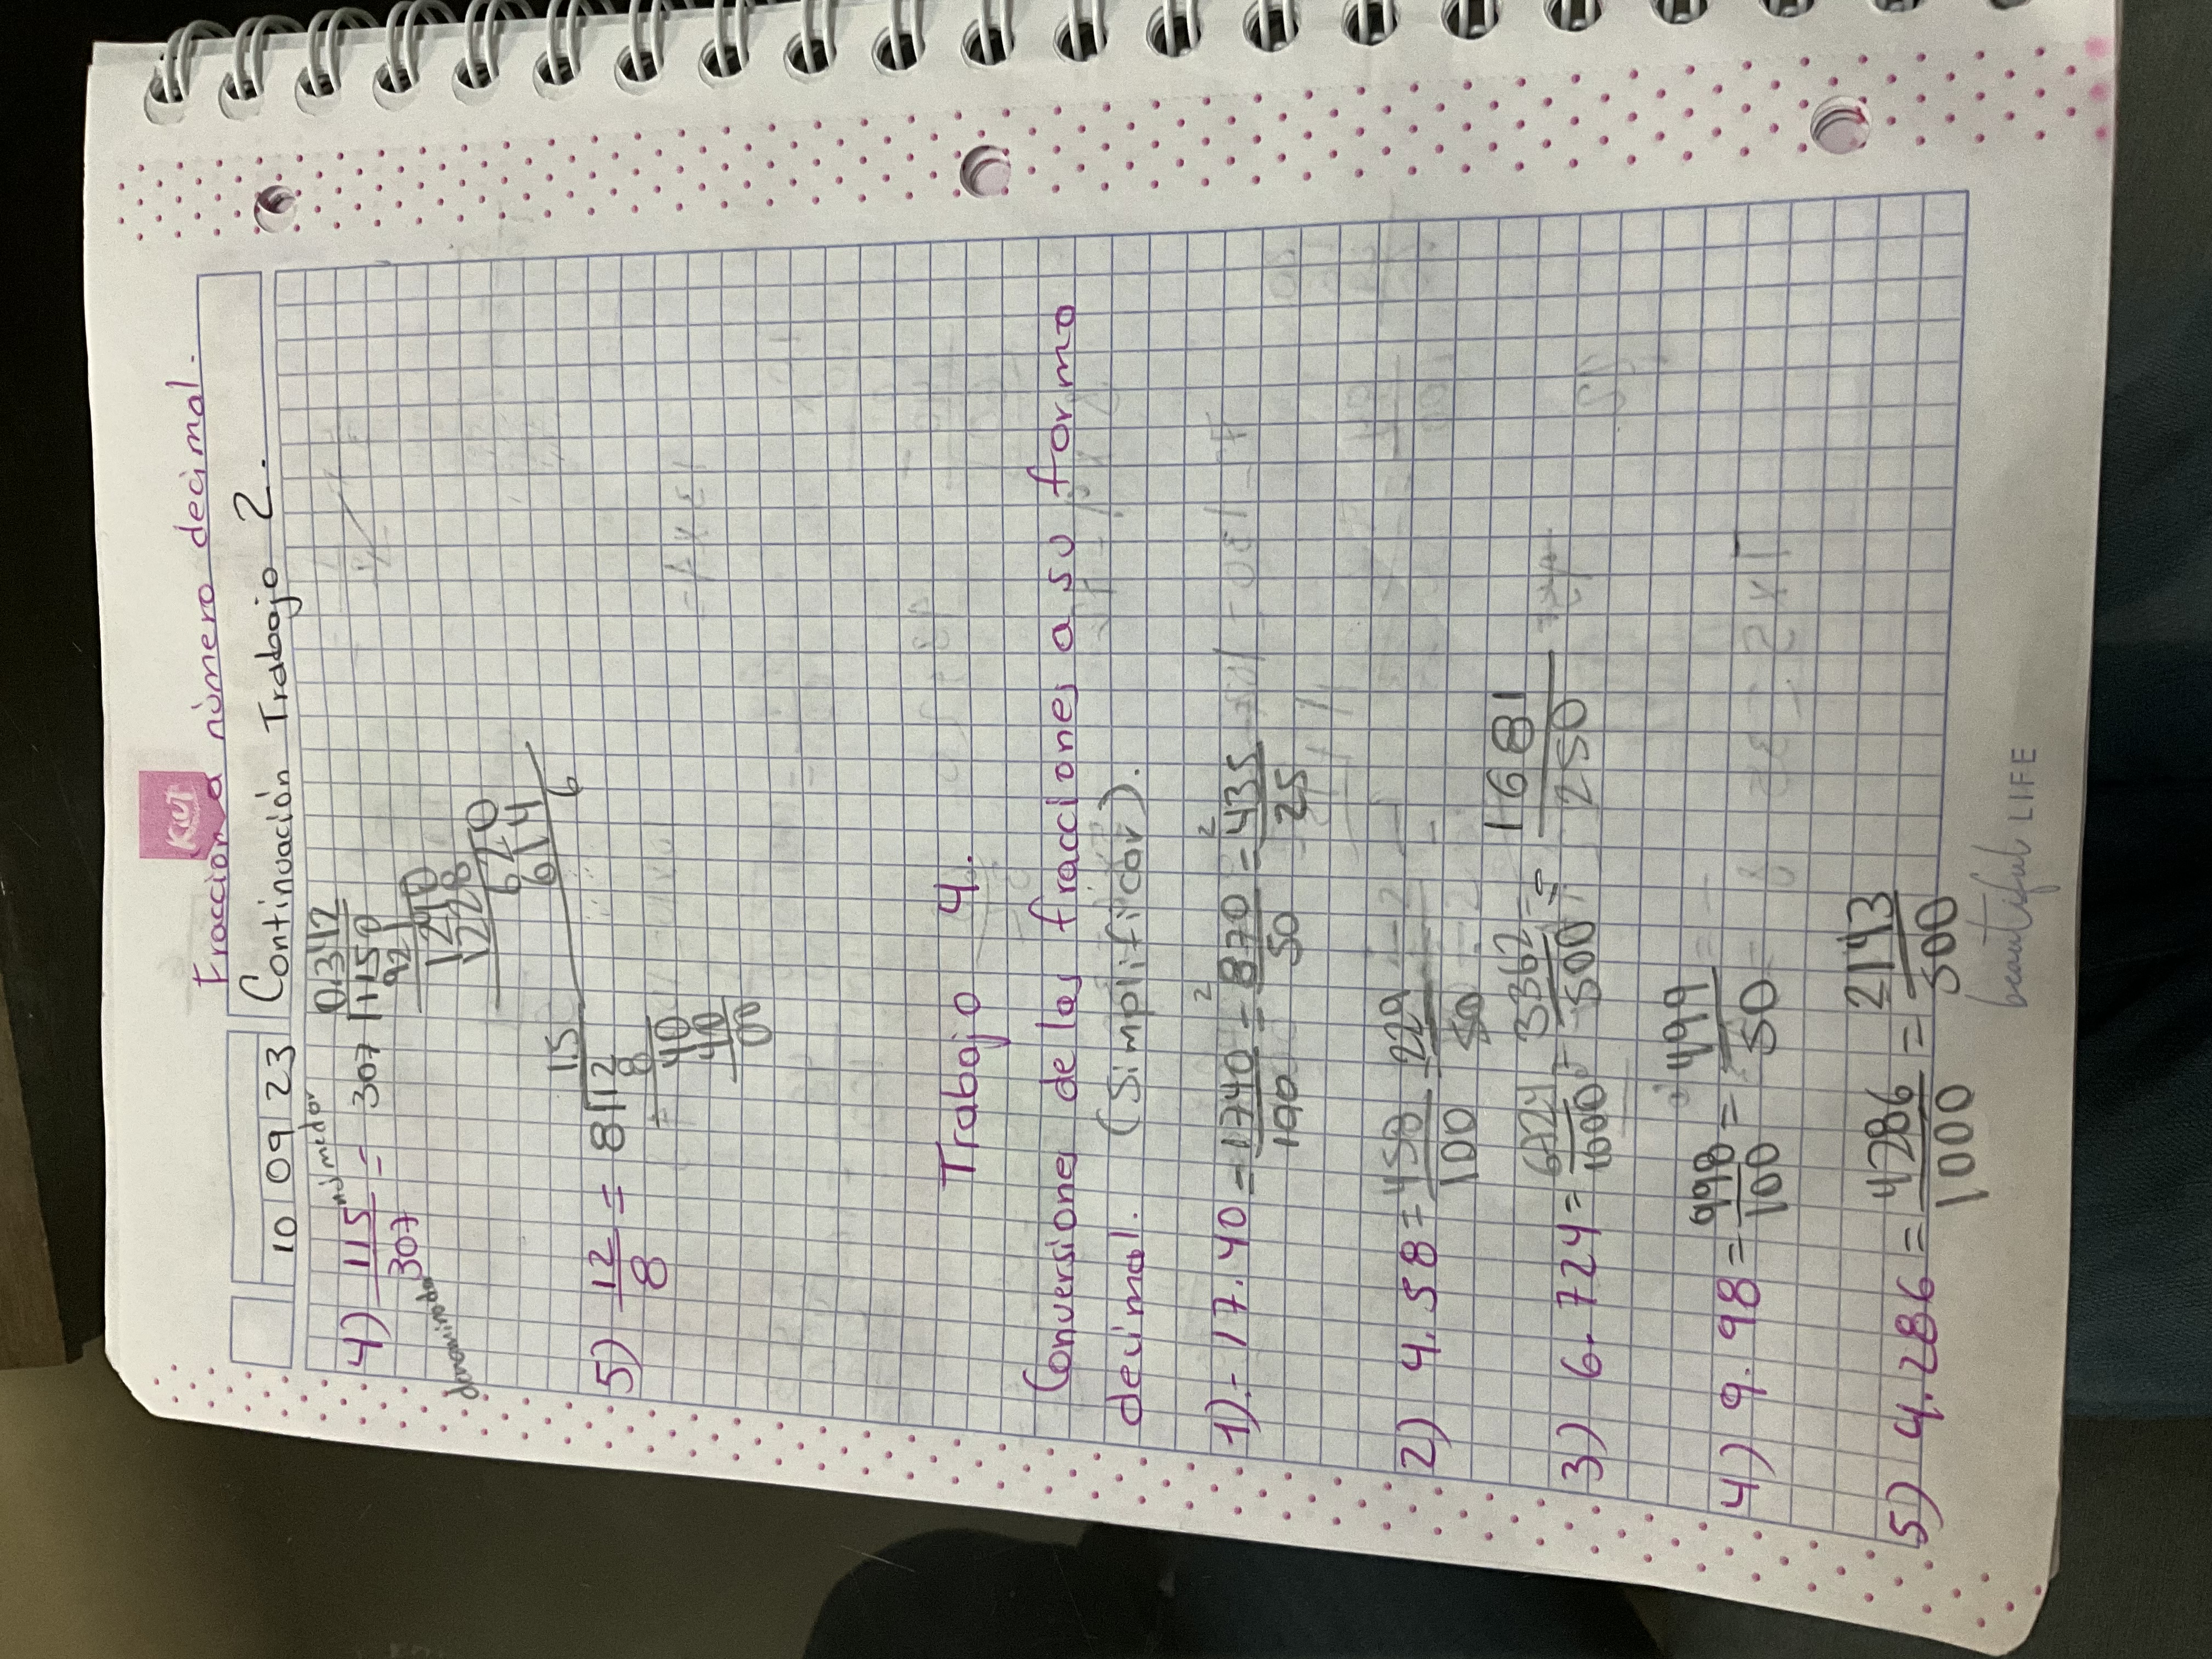 KUT
Fracción a número decimal.
10 09 23 Continuación Trabajo 2.
númedor
0.342
4) 115 = 307 1150
307
921
denominador
1240
1228
620
614
6
1.5
5) 12 = 8 12
8
8
40
40
00
Trabajo 4.
Conversiones de las fracciones a su forma
decimal. (Simplificar).
2 2
1).- 17.40 = 1740 = 870 = 435
100 50 25
2) 4.58 = 458 = 229
100 50
3) 6.724 = 6724 = 3362 = 1681
1000 500 250
4) 9.98 = 998 = 499
100 50
5) 4.286 = 4286 = 2143
1000 500
beautiful LIFE